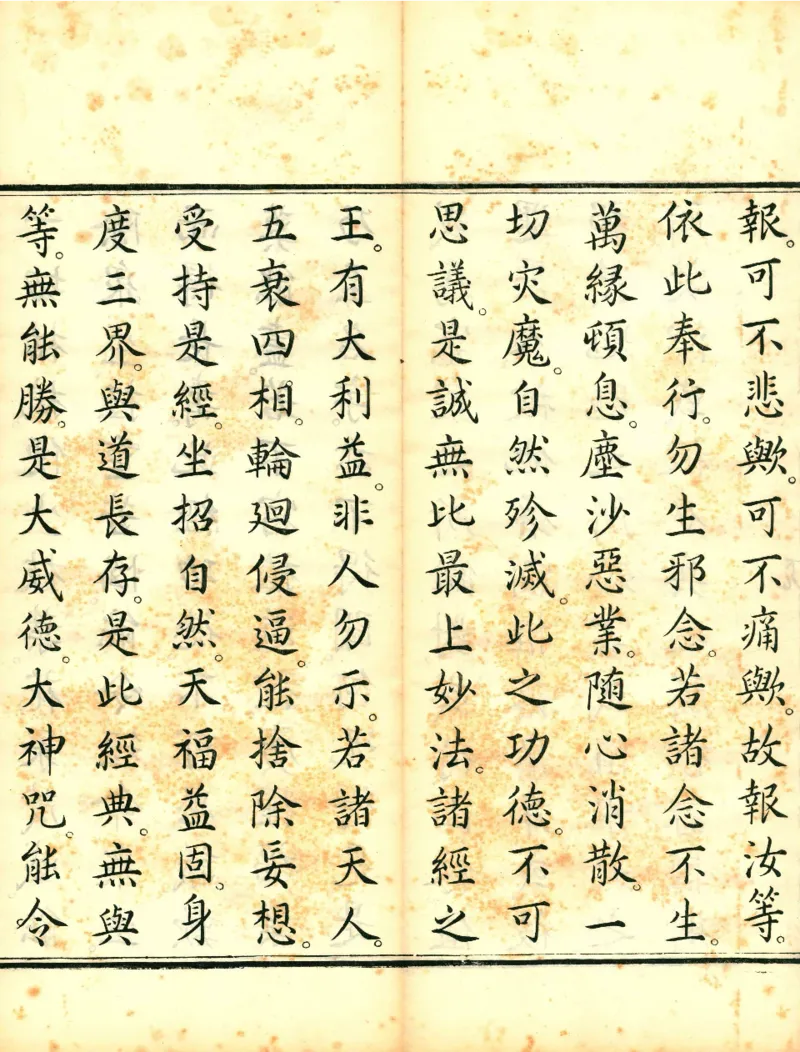 報。可不悲歟。可不痛歟。故報汝等。
依此奉行。勿生邪念。若諸念不生。
萬緣頓息。塵沙惡業。随心消散。一
切灾魔。自然殄滅。此之功德。不可
思議。是誠無比最上妙法。諸經之
王。有大利益。非人勿示。若諸天人。
五衰四相。輪廻侵逼。能捨除妄想。
受持是經。坐招自然。天福益固。身
度三界。與道長存。是此經典。無與
等。無能勝。是大威德。大神咒。能令